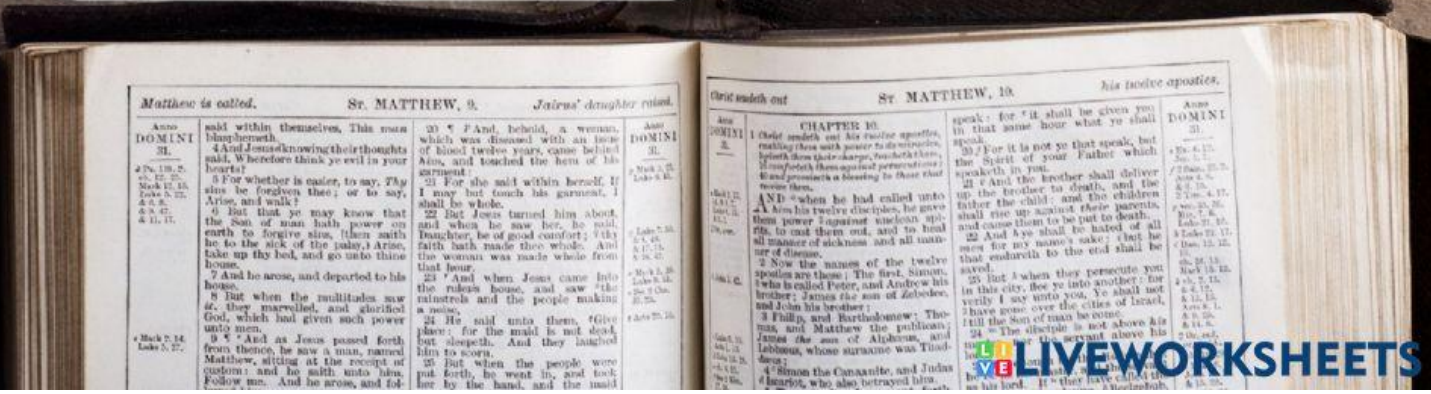 Matthew is called. ST. MATTHEW, 9. Jairus' daughter raised.
Anno
DOMINI
31.
said within themselves, This man
blasphemeth.
4 And Jesus knowing their thoughts
said, Wherefore think ye evil in your
hearts?
5 For whether is easier, to say, Thy
sins be forgiven thee; or to say,
Arise, and walk?
6 But that ye may know that
the Son of man hath power on
earth to forgive sins, (then saith
he to the sick of the palsy,) Arise,
take up thy bed, and go unto thine
house.
7 And he arose, and departed to his
house.
8 But when the multitudes saw
it, they marvelled, and glorified
God, which had given such power
unto men.
9 ¶ And as Jesus passed forth
from thence, he saw a man, named
Matthew, sitting at the receipt of
custom: and he saith unto him,
Follow me. And he arose, and fol-
20 ¶ And, behold, a woman,
which was diseased with an issue
of blood twelve years, came behind
him, and touched the hem of his
garment:
21 For she said within herself, If
I may but touch his garment, I
shall be whole.
22 But Jesus turned him about,
and when he saw her, he said,
Daughter, be of good comfort; thy
faith hath made thee whole. And
the woman was made whole from
that hour.
23 And when Jesus came into
the rulers house, and saw the
minstrels and the people making
a noise,
24 He said unto them, Give
place: for the maid is not dead,
but sleepeth. And they laughed
him to scorn.
25 But when the people were
put forth, he went in, and took
her by the hand, and the maid
Anno
DOMINI
31.
Christ sendeth out ST. MATTHEW, 10. his twelve apostles.
Anno
DOMINI
CHAPTER 10.
1 Christ sendeth out his twelve apostles,
AND when he had called unto
him his twelve disciples, he gave
them power against unclean spi-
rits, to cast them out, and to heal
all manner of sickness and all man-
ner of disease.
2 Now the names of the twelve
apostles are these; The first, Simon,
who is called Peter, and Andrew his
brother; James the son of Zebedee,
and John his brother;
3 Philip, and Bartholomew; Tho-
mas, and Matthew the publican;
James the son of Alphæus, and
Lebbæus, whose surname was Thad-
dæus;
4 Simon the Canaanite, and Judas
Iscariot, who also betrayed him.
speak: for it shall be given you
in that same hour what ye shall
speak.
20 For it is not ye that speak, but
the Spirit of your Father which
speaketh in you.
21 And the brother shall deliver
up the brother to death, and the
father the child: and the children
shall rise up against their parents,
and cause them to be put to death.
22 And ye shall be hated of all
men for my name's sake: but he
that endureth to the end shall be
saved.
23 But when they persecute you
in this city, flee ye into another: for
verily I say unto you, Ye shall not
have gone over the cities of Israel,
till the Son of man be come.
24 The disciple is not above his
Anno
DOMINI
31.
LIVEWORKSHEETS